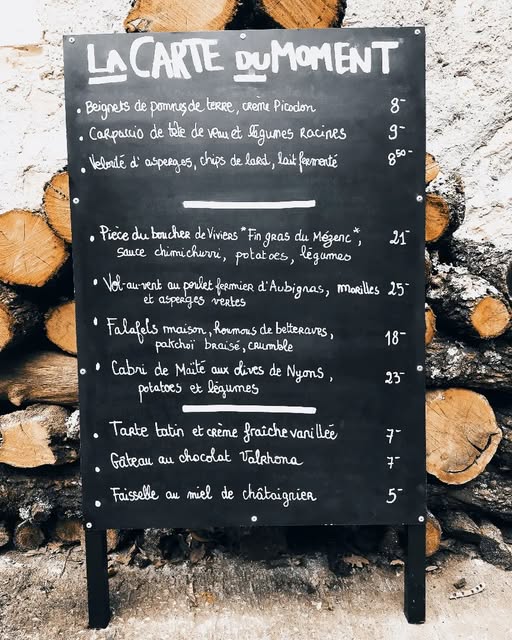 LA CARTE DU MOMENT
• Beignets de pommes de terre, crème Picodon 8-
• Carpaccio de tête de veau et légumes racines 9-
• Velouté d'asperges, chips de lard, lait fermenté 8 50-
• Pièce du boucher de Viviers "Fin gras du Mézenc", 21-
sauce chimichurri, potatoes, légumes
• Vol-au-vent au poulet fermier d'Aubignas, morilles 25-
et asperges vertes
• Falafels maison, Houmous de betteraves, 18-
patchoï braisé, crumble
• Cabri de Maïté aux olives de Nyons, 23-
potatoes et légumes
• Tarte tatin et crème fraîche vanillée 7-
• Gâteau au chocolat Valrhona 7-
• Faisselle au miel de châtaignier 5-